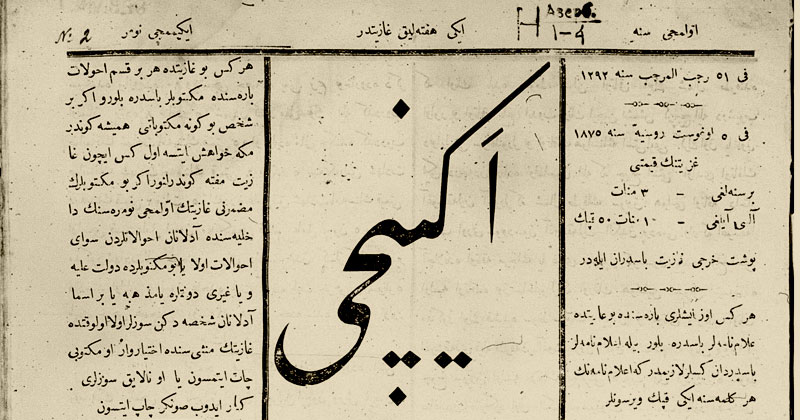 اوّلمجی سنه
Н Азерб.
1-4
ایکی هفته‌لیق غازیتدر
ایکیمجی نومر
№ 2
فی ۱۵ رجب المرجب سنه ۱۲۹۲
فی ۵ اوغوست روسیة سنه ۱۸۷۵
غزیتنك قیمتی
برسنه‌لغی - ۳ منات
آلتی آیلغی - ۱ منات ۵۰ قپك
پوشت خرجی غازیت باسدران ایله‌در
هر کس اوز ایشلری بازه‌سنده بو غازیتده
علام نامه‌لر باسدره بلور بیله اعلام نامه‌لر
باسدردان کسلر لازیمدر که اعلام نامه‌نك
هر کلمه‌سنه ایکی قپك ویرسونلر
اَکینچی
هر کس بو غازیتده هر بر قسم احوالات
باره‌سنده مکتوبلر باسدره بلور و اکر بر
شخص بو کونه مکتوباتی همیشه کوندر
مکه خواهش ایتسه اول کس ایچون غا
زیت مفته کوندرلنور اکر بو مکتوبلرك
مضمرنی غازیتك اوّلمجی نومره‌سنك دا
خلیه‌سنده آدلانان احوالاتلردن سوای
احوالات اولا یا بو مکتوبلرده دولت علیه
و یا غیری دوتاره یامذهبه یا بر اسما
آدلانان شخصه دکن سوزلر اولا اولوقتده
غازیتك منشی‌سنده اختیار وار او مکتوبی
چاپ ایتمسون یا او نالایق سوزلری
کنار ایدوب صونکر چاپ ایتسون